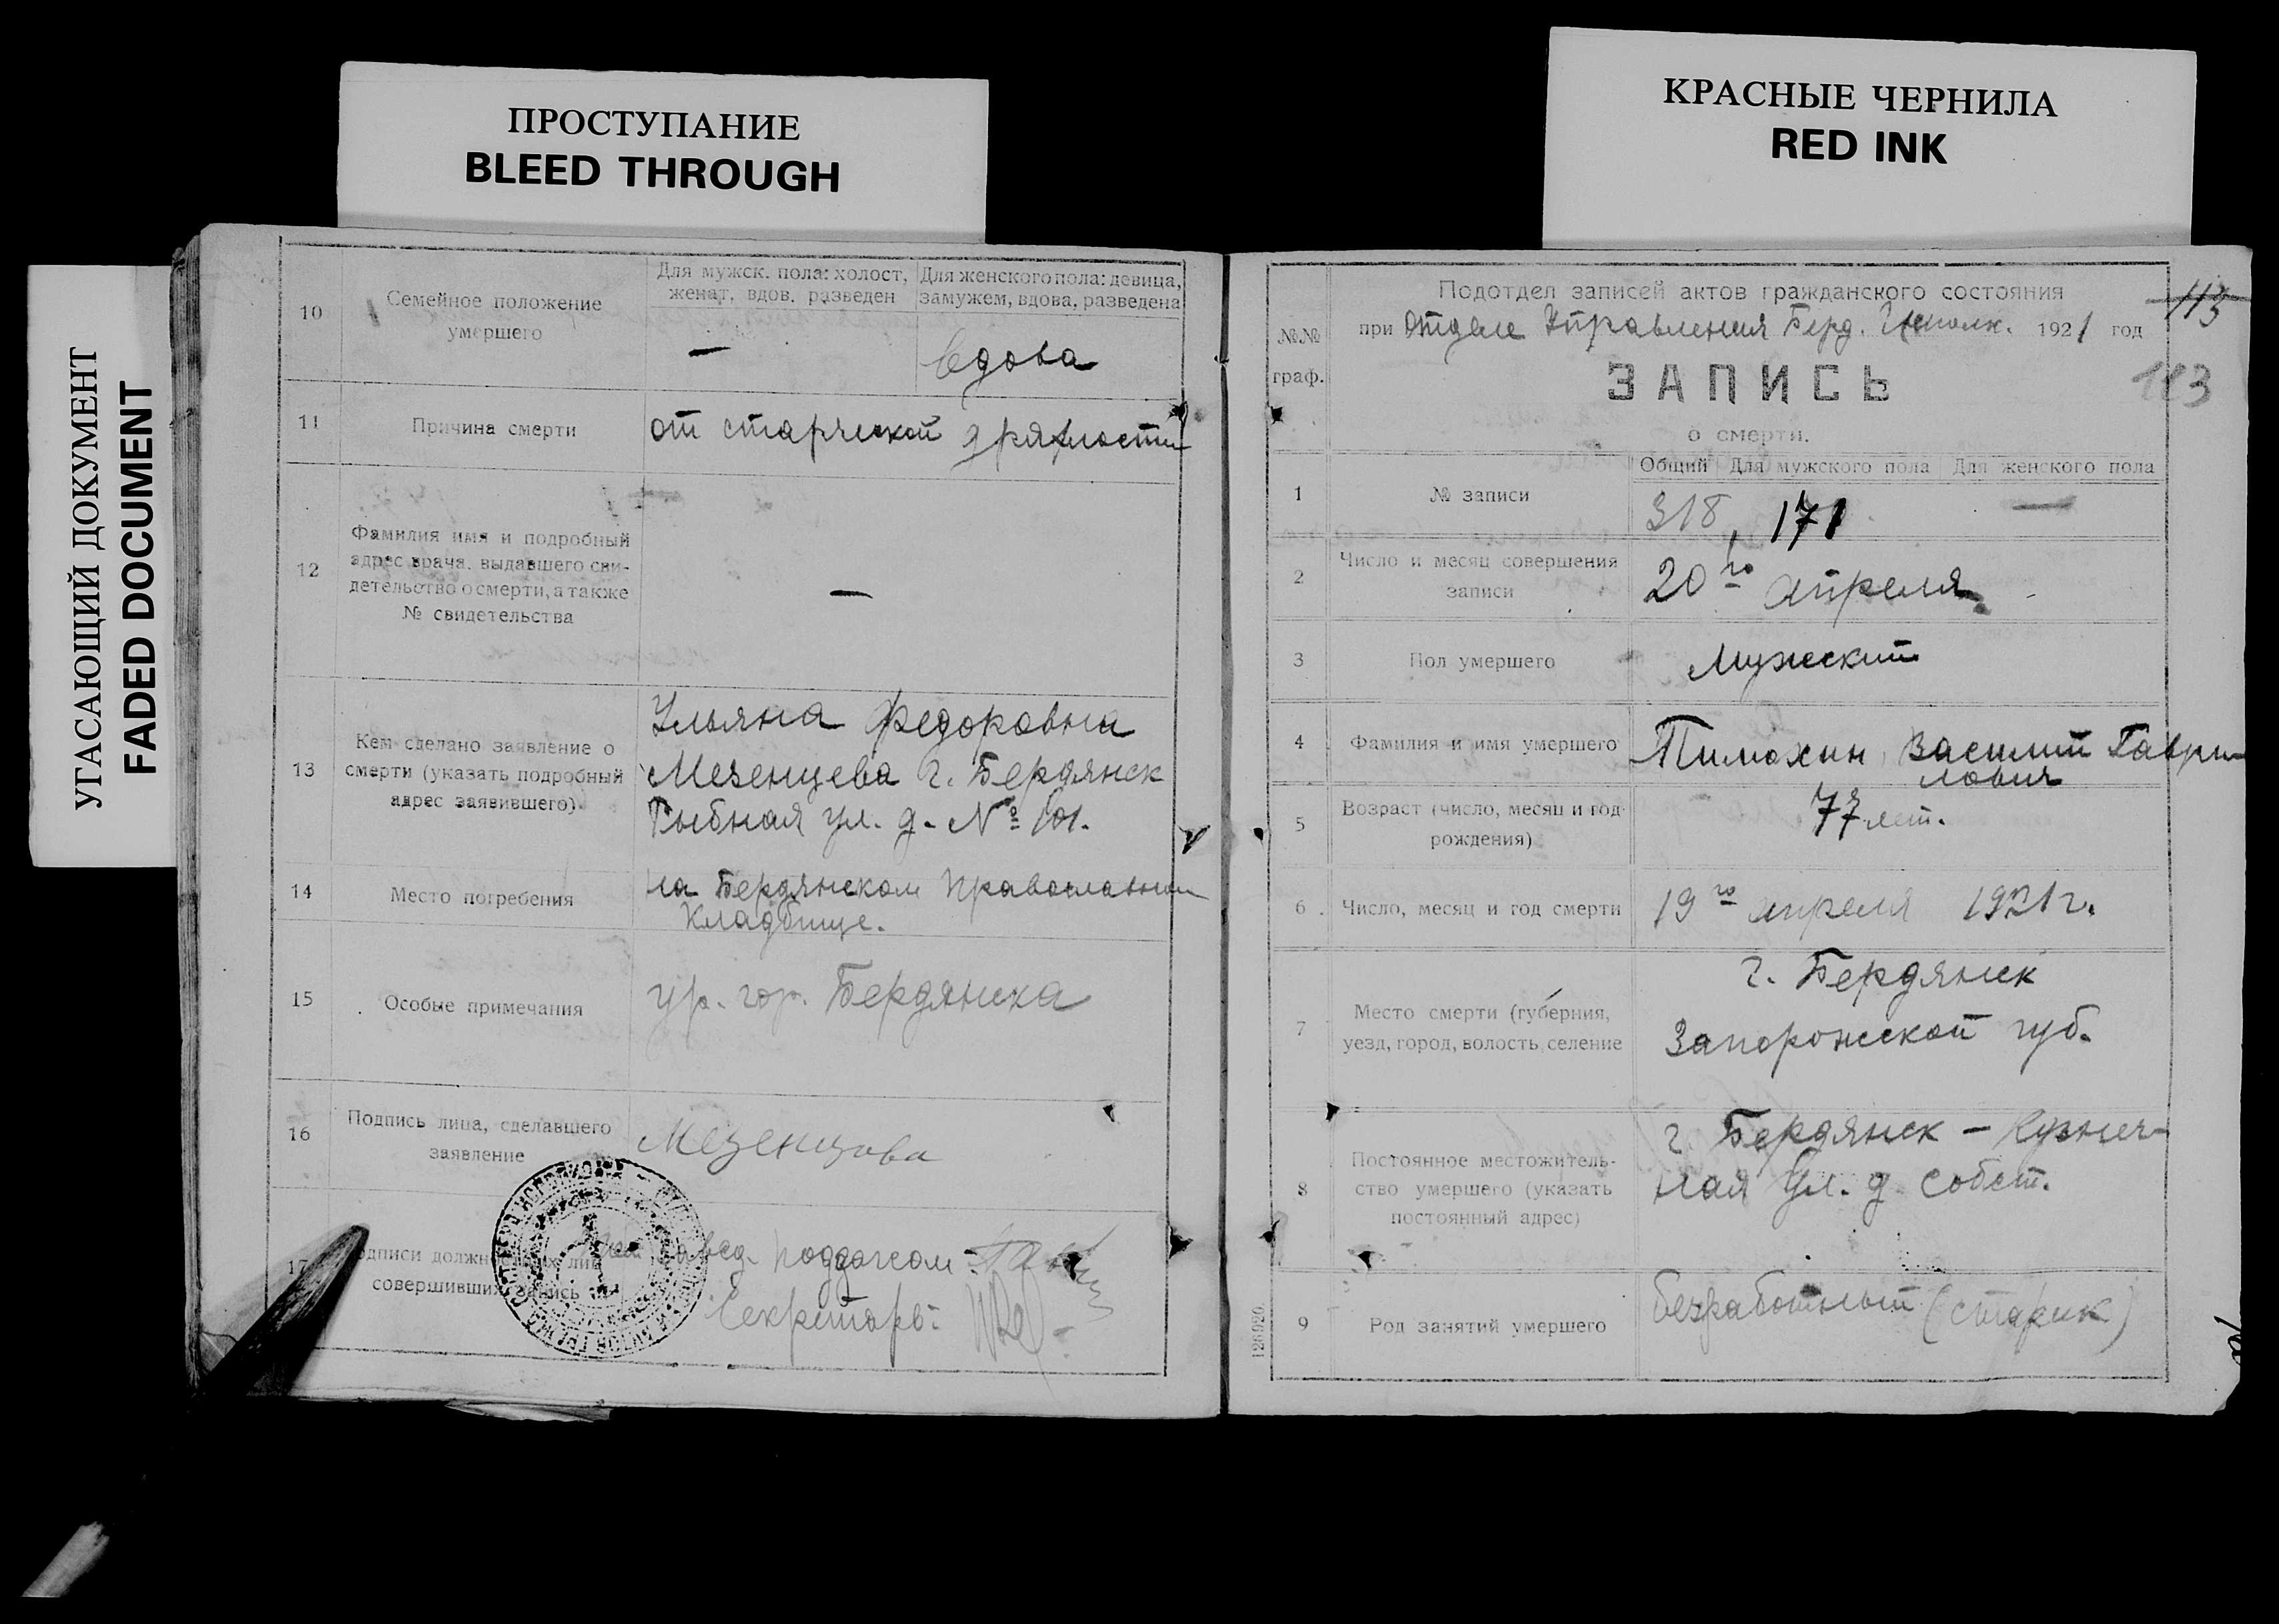 ПРОСТУПАНИЕ
BLEED THROUGH
КРАСНЫЕ ЧЕРНИЛА
RED INK
УГАСАЮЩИЙ ДОКУМЕНТ
FADED DOCUMENT
10
Семейное положение
умершего
Для мужск. пола: холост,
женат, вдов, разведен
Для женского пола: девица,
замужем, вдова, разведена
—
вдова
11
Причина смерти
от старческой дряхлости
12
Фамилия имя и подробный
адрес врача, выдавшего сви-
детельство о смерти, а также
№ свидетельства
—
13
Кем сделано заявление о
смерти (указать подробный
адрес заявившего)
Ульяна Федоровна
Мезенцева г. Бердянск
Рыбная ул. д. №
14
Место погребения
на Бердянском Православном
Кладбище.
15
Особые примечания
гр. гор. Бердянска
16
Подпись лица, сделавшего
заявление
Мезенцова
17
Подписи должностных лиц
совершивших запись
Завед. подотделом
Секретарь:
Подотдел записей актов гражданского состояния
при Отделе Управления Берд. Исполк. 1921 год
113
113
№№
граф.
ЗАПИСЬ
о смерти.
Общий Для мужского пола Для женского пола
1
№ записи
318 171 —
2
Число и месяц совершения
записи
20го апреля
3
Пол умершего
Мужской
4
Фамилия и имя умершего
Тимохин Василий Гаври-
лович
5
Возраст (число, месяц и год
рождения)
77 лет.
6
Число, месяц и год смерти
19го апреля 1921 г.
7
Место смерти (губерния,
уезд, город, волость, селение
г. Бердянск
Запорожской губ.
8
Постоянное местожитель-
ство умершего (указать
постоянный адрес)
г. Бердянск – Кузнеч-
ная ул. д. собст.
9
Род занятий умершего
безработный (старик)
126920